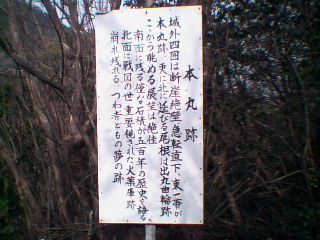 本丸跡
城外四囲は断崖絶壁、急転直下、東一帯が
本丸跡、更に北に延びる尾根は出丸曲輪跡
ここから眺める展望は絶佳
南面に残る僅な石積が五百年の歴史を語る
北面に戦国の世重要視された火薬庫跡
崩れ残れる、つわ者どもの夢の跡